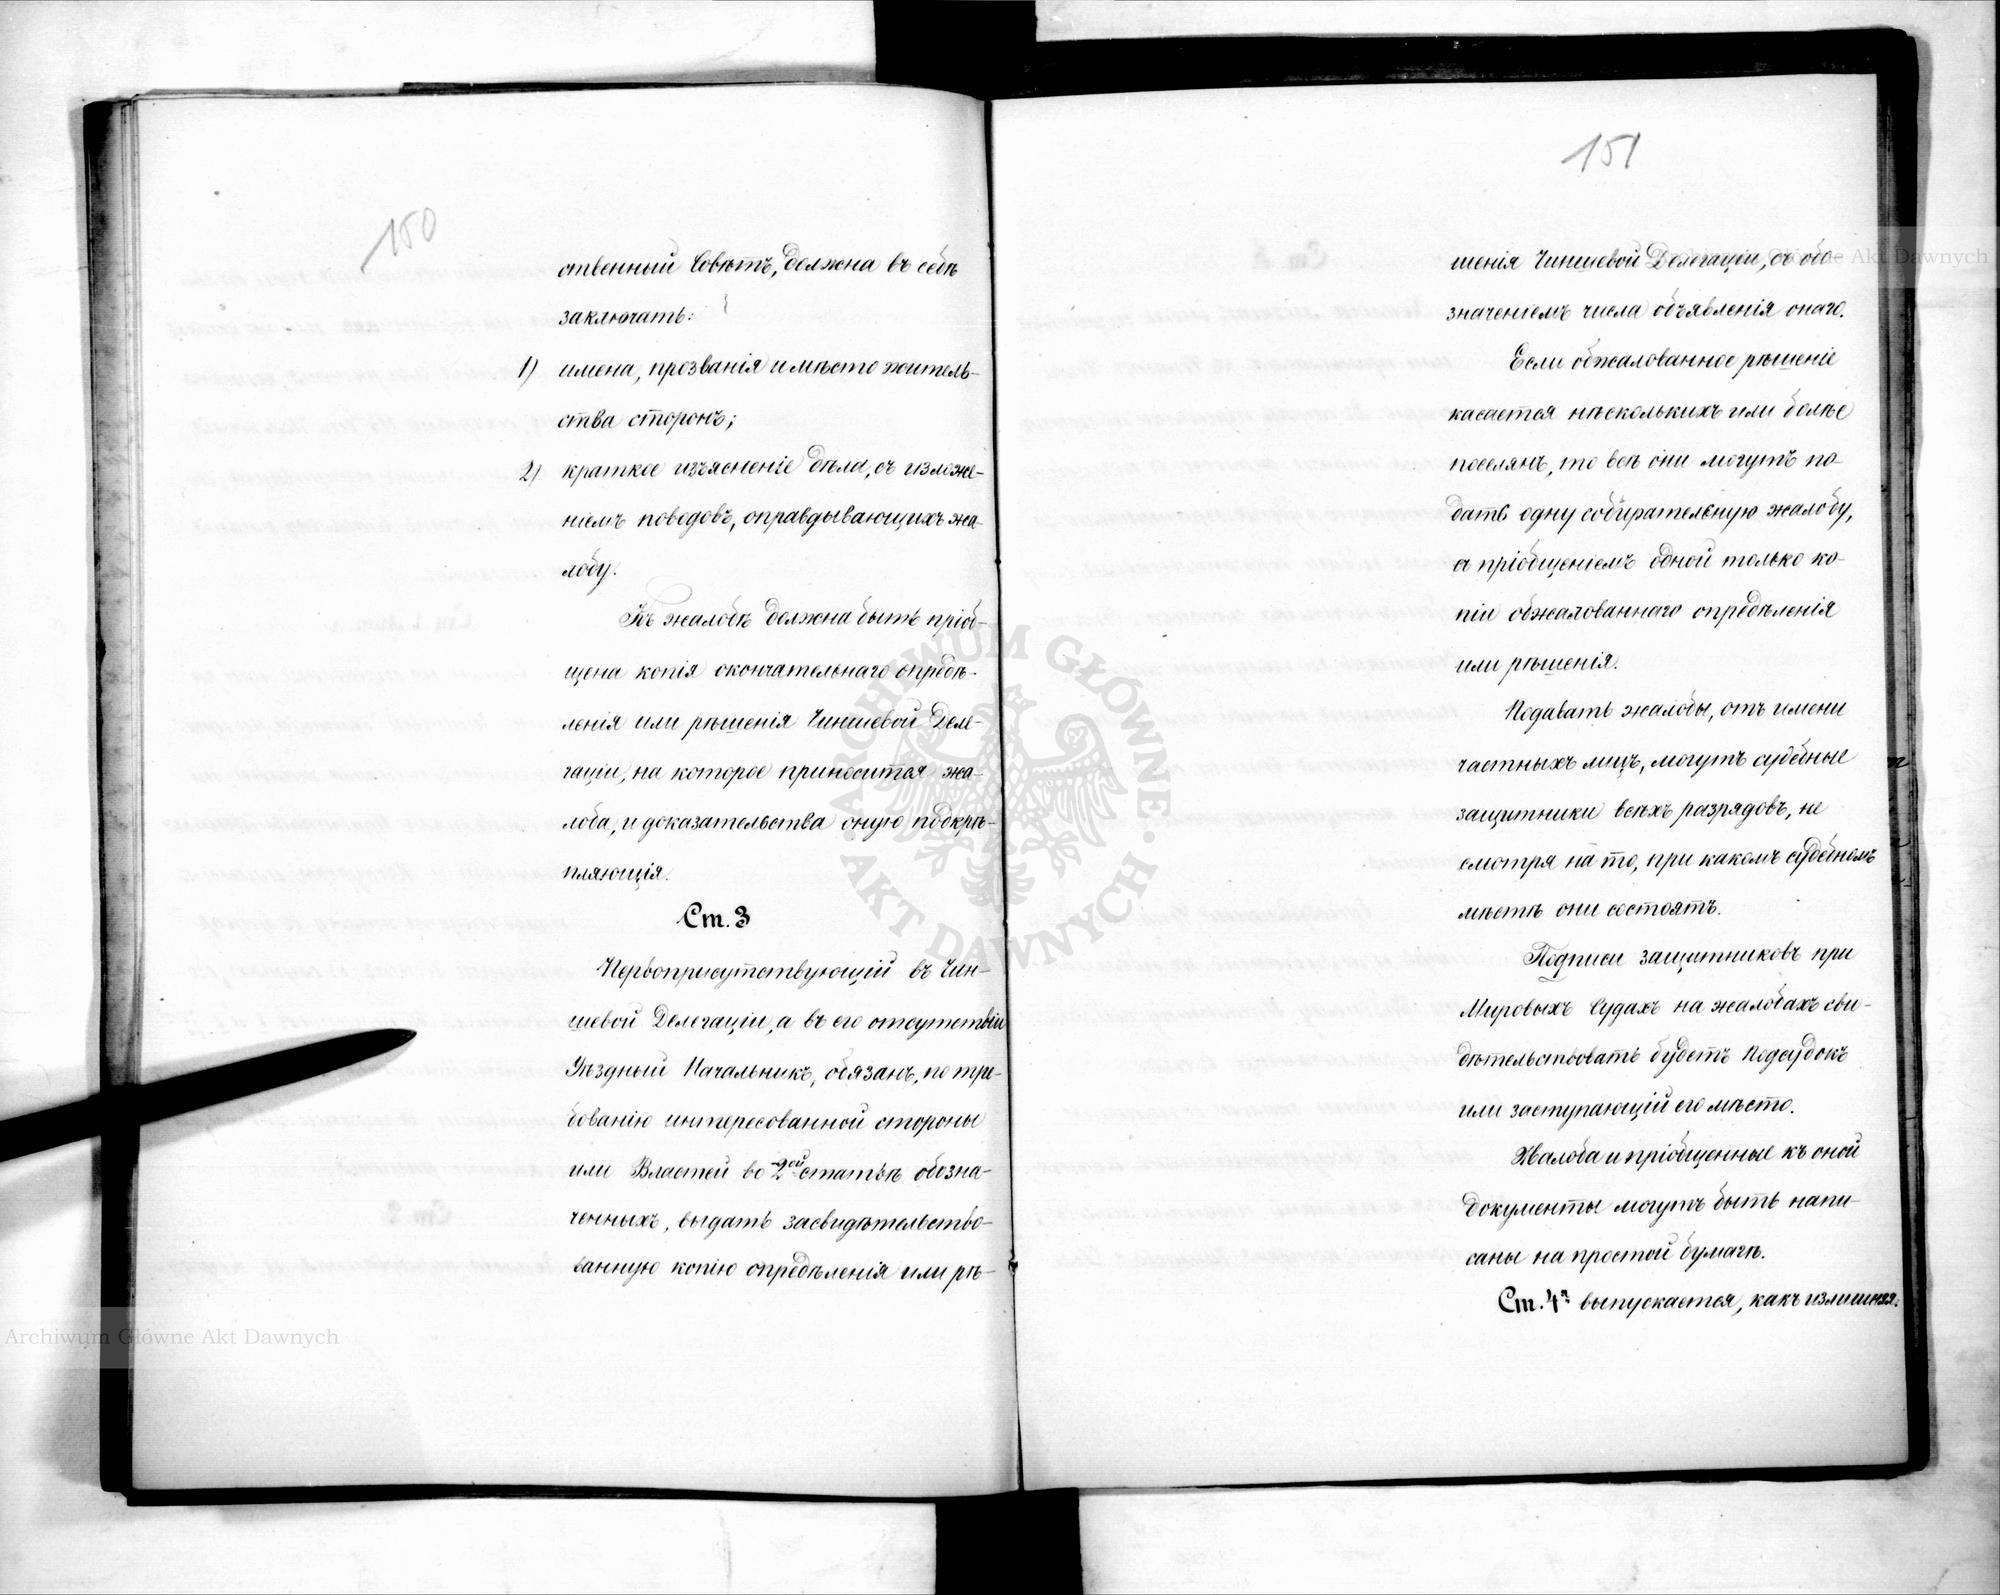 150
ственный Совѣтъ, должна въ себѣ
заключать:
1) имена, прозванія и мѣсто житель-
ства сторонъ;
2) краткое изъясненіе дѣла, съ изложе-
ніемъ поводовъ, оправдывающихъ жа-
лобу.
Къ жалобѣ должна быть пріоб-
щена копія окончательнаго опредѣ-
ленія или рѣшенія Чиншевой Деле-
гаціи, на которое приносится жа-
лоба, и доказательства оную подкрѣ-
пляющія.
Ст. 3
Первоприсутствующій въ Чин-
шевой Делегаціи, а въ его отсутствіи
Уѣздный Начальникъ, обязанъ, по тре-
бованію интересованной стороны
или Властей во 2ой статьѣ обозна-
ченныхъ, выдать засвидѣтельство-
ванную копію опредѣленія или рѣ-
151
шенія Чиншевой Делегаціи, съ обо-
значеніемъ числа объявленія онаго.
Если обжалованное рѣшеніе
касается нѣсколькихъ или болѣе
поселянъ, то всѣ они могутъ по-
дать одну собирательную жалобу,
съ пріобщеніемъ одной только ко-
піи обжалованнаго опредѣленія
или рѣшенія.
Подавать жалобы, отъ имени
частныхъ лицъ, могутъ судебные
защитники всѣхъ разрядовъ, не
смотря на то, при какомъ судебномъ
мѣстѣ они состоятъ.
Подписи защитниковъ при
Мировыхъ Судахъ на жалобахъ сви-
дѣтельствовать будетъ Подсудокъ
или заступающій его мѣсто.
Жалоба и пріобщенные къ оной
документы могутъ быть напи-
саны на простой бумагѣ.
Ст. 4я выпускается, какъ излишняя.
Archiwum Główne Akt Dawnych
Archiwum Główne Akt Dawnych
ARCHIWUM GŁÓWNE AKT DAWNYCH